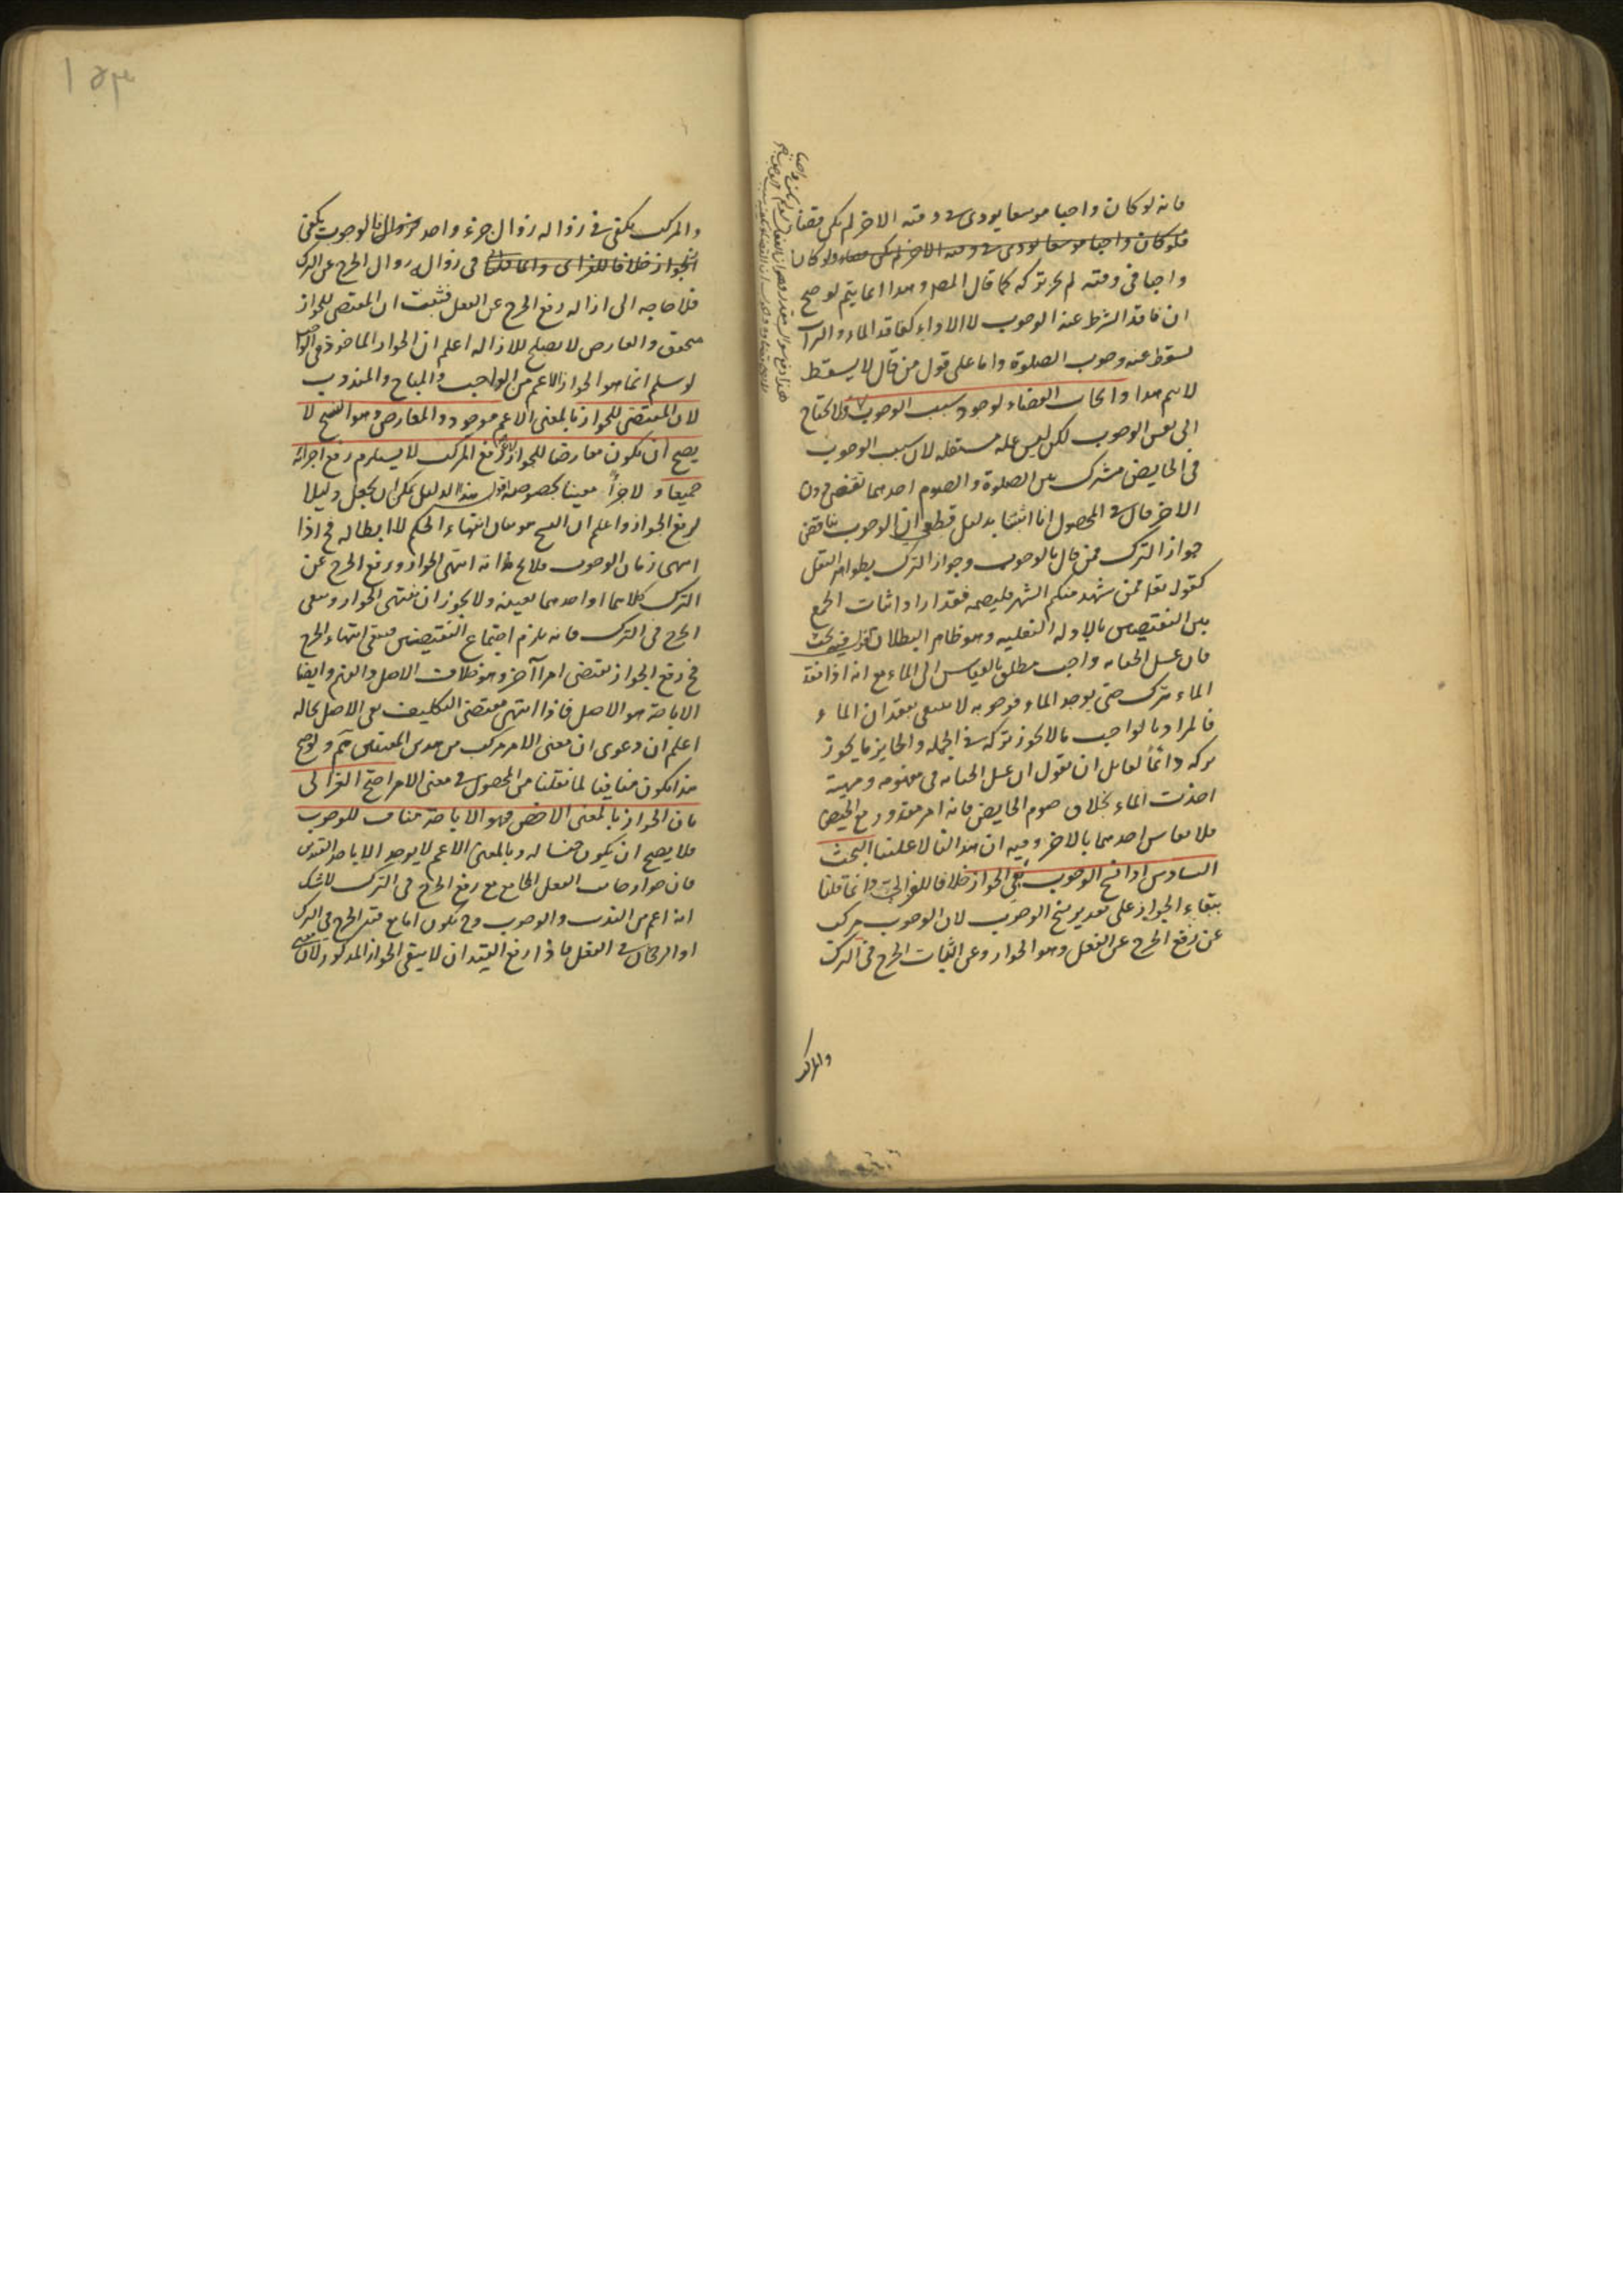 فانه لو كان واجبا موسعا يودى فى وقته الاخر لم يكن قضا
فلو كان واجبا موسعا يودى فى وقته الاخر لم يكن قضاء ولو كان
واجبا فى وقته لم يجز تركه كما قال المصر وهذا انما يتم لو صح
ان فاقد الشرط عنه الوجوب لا الاداء كفاقد الماء والتراب
يسقط عنه وجوب الصلوة واما على قول من قال لا يسقط
لا يتم هذا وايجاب القضاء لوجود سبب الوجوب ولا يحتاج
الى نفس الوجوب لكن ليس عله مستقله لان سبب الوجوب
فى الحايض مشترك بين الصلوة والصوم احدهما تقضى دون
الاخر قال فى المحصول انا اثبتنا بدليل قطعى ان الوجوب يناقض
جواز الترك فمن قال بالوجوب وجواز الترك بظواهر النقل
كقوله تعا فمن شهد منكم الشهر فليصمه فقد اراد اثبات الجمع
بين النقيضين بالادله النقليه وهو ظاهر البطلان اقول فيه بحث
فان غسل الجنابه واجب مطلق بالقياس الى الماء مع انه اذا فقد
الماء يترك حتى يوجد الماء فوجوبه لا ينتفى بفقدان الماء
فالمراد بالواجب ما لا يجوز تركه فى الجمله والجايز ما يجوز
تركه دائمًا لقايل ان يقول ان غسل الجنابه فى مفهومه ومهيته
اخذت الماء بخلاف صوم الحايض فانه امر مقدور مع الحيض
فلا يقاس احدهما بالاخر وفيه ان هذا لنا لا علينا البحث
السادس اذا نسخ الوجوب بقى الجواز خلافا للغزالى وانما قلنا
ببقاء الجواز على تقدير نسخ الوجوب لان الوجوب مركب
عن رفع الحرج عن الفعل وهو الجواز وعن اثبات الحرج فى الترك
والمركب
والمركب يكفى فى زواله زوال جزء واحد فزوال الوجوب يكفى
الجواز خلافا للغزالى وانما قلنا فى زواله زوال الحرج عن الترك
فلا حاجه الى ازاله رفع الحرج عن الفعل فثبت ان المقتضى للجواز
متحقق والعارض لا يصلح للازاله اعلم ان الجواز الماخوذ فى الواجب
لو سلم انما هو الجواز الاعم من الواجب والمباح والمندوب
لان المقتضى للجواز بالمعنى الاعم موجود والمعارض وهو النسخ لا
يصح ان يكون معارضا للجواز لان رفع المركب لا يستلزم رفع اجزائه
جميعا ولا جزأ معينا بخصوصه اقول هذا الدليل يمكن ان يجعل دليلا
لرفع الجواز واعلم ان النسخ هو بيان انتهاء الحكم لا ابطاله فح اذا
انتهى زمان الوجوب فلا يخ اما انه انتهى الجواز ورفع الحرج عن
الترك كلاهما او احدهما بعينه ولا يجوز ان ينتهى الجواز ويبقى
الحرج فى الترك فانه يلزم اجتماع النقيضين فبقى انتهاء الحرج
فح رفع الجواز يقتضى امرا آخر وهو خلاف الاصل والفرض وايضا
الاباحة هو الاصل فاذا انتهى مقتضى التكليف بقى الاصل بحاله
اعلم ان دعوى ان معنى الامر مركب من هذين المعنيين ثم ولو صح
هذا يكون منافيا لما نقلنا من المحصول فى معنى الامر احتج الغزالى
بان الجواز بالمعنى الاخص فهو الاباحة مناف للوجوب
فلا يصح ان يكون جنسا له وبالمعنى الاعم لا يوجد الا باحد القيدين
فان جواز جانب الفعل الجامع مع رفع الحرج فى الترك لا شك
انه اعم من الندب والوجوب وح يكون اما مع قيد الحرج فى الترك
او الرجحان فى الفعل فاذا رفع القيد ان لا يبقى الجواز المذكور لان